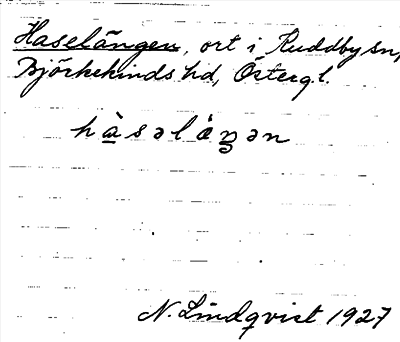 Haselängen, ort i Ruddby sn,
Björkekinds hd, Östergl.
hàsəlàŋən
N. Lindqvist 1927